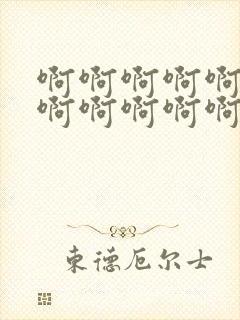 啊啊啊啊啊
啊啊啊啊啊
东德厄尔士